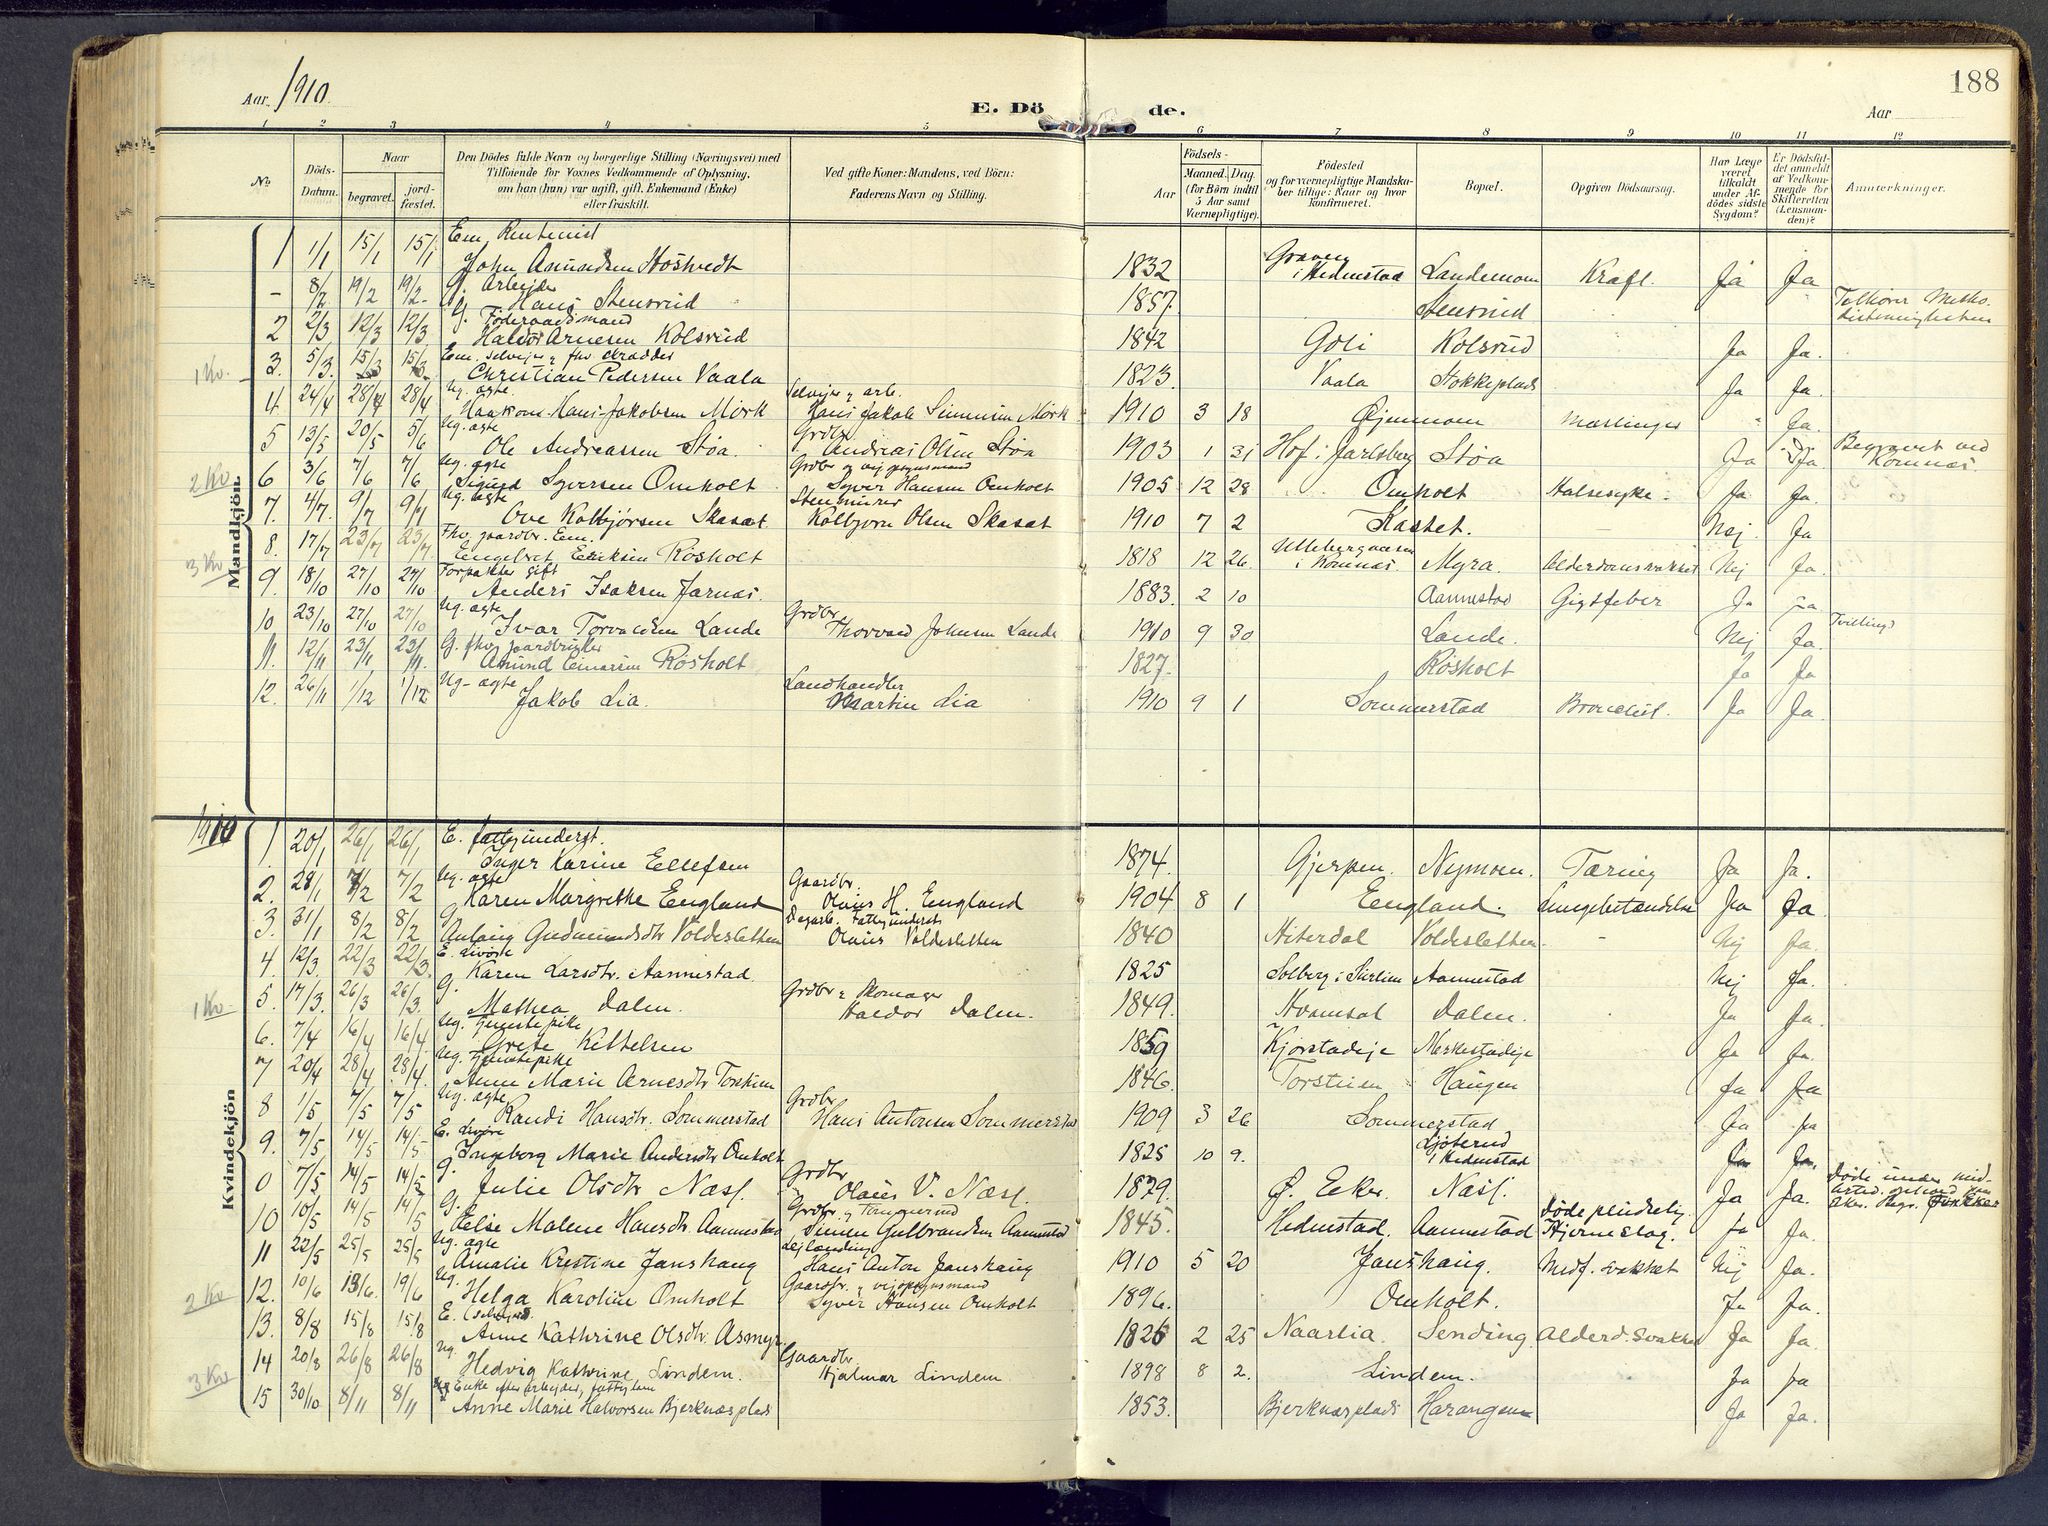 188
Aar 1910
E. Dö de.
Aar
1 2 3 4 5 6 7 8 9 10 11 12
No.
Döds-Datum.
Naar
begravet.
jord-fæstet.
Den Dödes fulde Navn og borgerlige Stilling (Næringsvei) med
Tilföiende for Voxnes Vedkommende af Oplysning,
om han (hun) var ugift, gift, Enkemand (Enke)
eller fraskilt.
Ved gifte Koner: Mandens, ved Börn:
Faderens Navn og Stilling.
Födsels-
Aar
Maaned. Dag.
(for Börn indtil
5 Aar samt
Værnepligtige).
Födested
og for værnepligtige Mandska-
ber tillige: Naar og hvor
konfirmeret.
Bopæl.
Opgiven Dödsaarsag.
Har Læge
været
tilkaldt
under Af-
dödes sidste
Sygdom?
Er Dödsfal-
det anmeldt
af Vedkom-
mende for
Skifteretten
(Lensman-
den)?
Anmærkninger.
Mandkjön.
Em. Rentenist
1 1/1 15/1 15/1 John Amundsen Stostvedt 1832 i Hedenstad Landemoen Kræft. Ja Ja
G. Arbejder
- 8/2 19/2 19/2 Hans Stensrud 1857. Stensrud
G. Föderaadsmand
2 2/3 12/3 12/3 Haldor Arnesen Kolsrud 1842 Goli Kolsrud Ja Ja.
Em. selvejer & fhv skrædder
1 Kv. 3. 5/3. 15/3 15/3 Christian Pedersen Vaala 1823. Vaala Stokkeplads Ja Ja.
Ug. ægte Selvejer & arb.
4. 24/4 28/4 28/4 Haakon Hans Jakobsen Mörk Hans Jakob Simensen Mörk 1910 3 18 Öjenmoen Mæslinger Ja.
Ug. ægte Grdbr.
5 13/5 20/5 5/6 Ole Andreassen Stöa. Andreas Olsen Stöa 1903 1 31 Hof i Jarlsberg Stöa Ja Ja Begravet ved Komnæs
Ug. ægte Grdbr og vejopsynsmand
2 Kv 6 3/6 7/6 7/6 Sigurd Syversen Omholt Syver Hansen Omholt 1905 12 28 Omholt Halsesyke. Ja Ja
Ug. ægte Stenmurer
7. 4/7. 9/7 9/7 Ove Kolbjörnsen Skasæt Kolbjörn Olsen Skasæt 1910 7 2 Nej. Ja
Fhv. gaardbr. Em.
3 Kv 8. 17/7 23/7 23/7. Engebret Eriksen Rösholt 1818 12 26 i Komnæs. Myra. Alderdomssvækket Nej Ja.
Forpakter gift
9. 18/10 27/10 27/10 Anders Isaksen Jarnæs. 1883. 2 10 Aannestad Gigtfeber Ja Ja
Ug. ægte Grdbr
10 23/10 27/10 27/10 Ivar Torvaldsen Lande Thorvald Johnsen Lande 1910 9 30 Lande. Nej Ja. Tvilling
G. fhv. gaardbruger
11. 12/11 23/11 23/11. Amund Einarsen Rösholt 1827. Rösholt Ja Ja
Ug. ægte Landhandler
12. 26/11 1/12 1/12 Jakob Lia. Martin Lia 1910 9 1 Sommerstad Bronchit. Ja Ja.
1910
Kvindekjön
E. fattigunderst.
1. 20/1 26/1 26/1 Inger Karine Ellefsen 1874. Gjerpen Nymoen. Tæring Ja Ja.
Ug. ægte Gaardbr.
2. 28/1 7/2 7/2 Karen Margrethe England Olaus H. England 1904 8 1 Eengland. Lungebetændelse Ja Ja
G. Dagarb. Fattigunderst
3. 31/1 8/2 8/2 Anlaug Gudmundsdtr Voldesletten Olaus Voldesletten 1840 Hiterdal Voldesletten Nej Ja.
E. livöre
4 12/3. 22/3 22/3. Karen Larsdtr. Aannestad 1825 Aannestad Nej Ja.
G. Grdbr & Skomager
1 Kv 5. 17/3. 26/3 26/3. Mathea Dalen. Haldor Dalen. 1849. Hvamsal Dalen. Ja Ja.
Ug. Tjenestepike
6. 7/4 16/4 16/4. Grete Kittelsen 1859 Kjörstadeje Merkestadeje Ja Ja.
Ug. Tjenestepike
7 20/4 28/4 28/4. Anne Marie Arnesdtr Torstein 1846. Haugen Ja Ja
Ug. ægte Grdbr
8 1/5 7/5 7/5 Randi Hansdtr. Sommerstad Hans Antonsen Sommerstad 1909 3 26 Sommerstad Ja Ja
E. livöre
9. 7/5 14/5 14/5 Ingeborg Marie Andersdtr Omholt 1825 10 9. i Hedenstad Ja Ja.
G. Grdbr
0 7/5 14/5 14/5 Julie Olsdtr Næss. Olaus V. Næss. 1879. Ö. Eker. Næss. Ja Ja.
G. Grdbr
10 10/5 14/5 14/5 Else Malene Hansdtr Aannestad Simen Gulbrandsen Aannestad 1845. Hedenstad. Aannestad Döde plutselig. Hjerneslag. Ja Ja.
Ug. ægte Lejlænding
11 22/5 25/5 25/5 Amalie Kristine Janshaug Hans Anton Janshaug 1910 5 20 Janshaug. Medf. svakhet Nej Ja.
Ug. Gaardbr. & vejopsynsmand
2 Kv 12. 10/6 19/6. 19/6 Helga Karoline Omholt Syver Hansen Omholt 1896. Omholt. Ja Ja.
E.
13. 8/8 15/8 15/8 Anne Kathrine Olsdtr. Asmyr 1826 2 25 Naarlia. Sending. Alderd. svakhet Ja Ja.
Ug. Gaardbr
14 20/8 26/8 26/8 Hedvig Kathrine Lindem. Hjalmar Lindem 1898 8 2. Lindem. Ja Ja
Enke efter arbejder, fattiglem
3 Kv 15 30/10 8/11 8/11 Anne Marie Halvorsen Bjerknæsplads 1853. Bjerknæsplads Harangen Ja Ja.